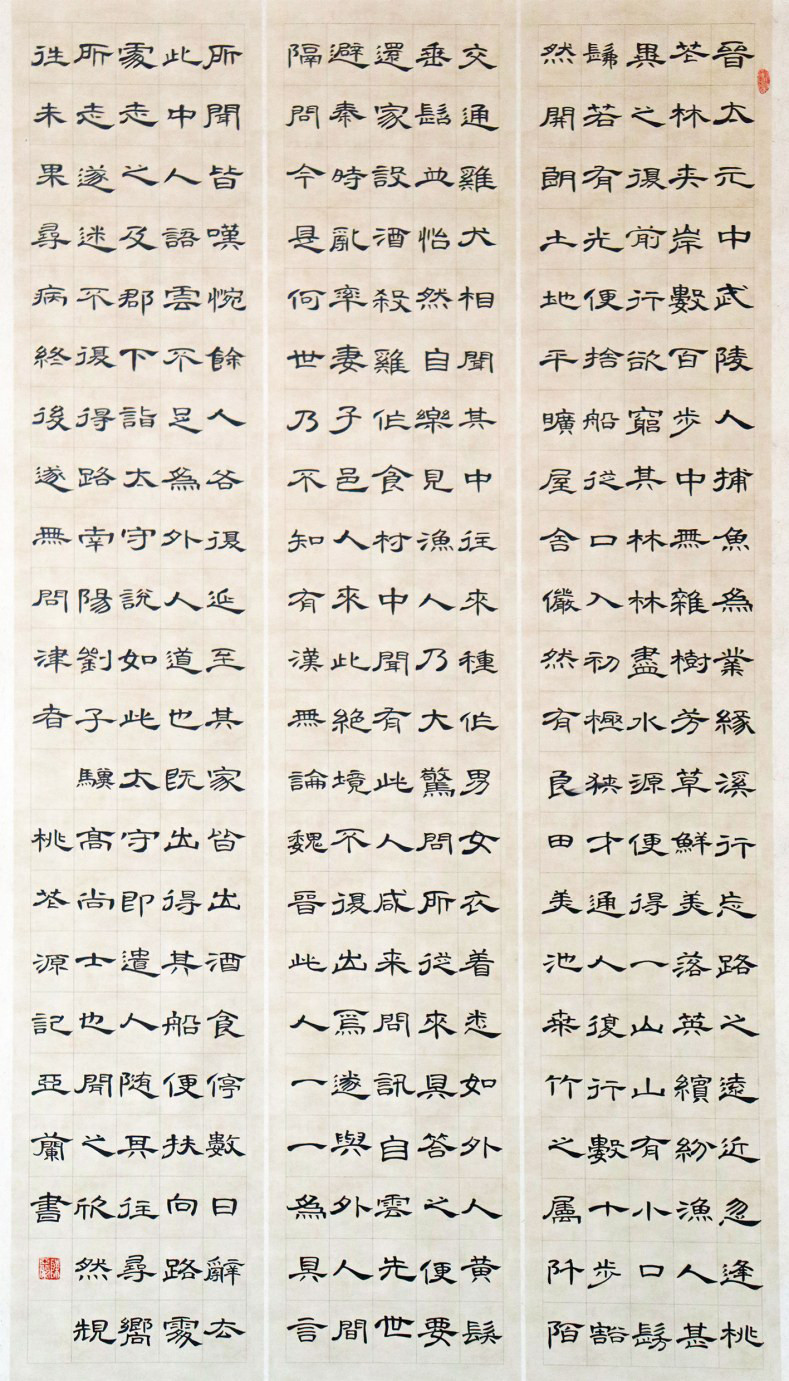 晉太元中武陵人捕魚為業緣溪行忘路之遠近忽逢桃
花林夾岸數百步中無雜樹芳草鮮美落英繽紛漁人甚
異之復前行欲窮其林林盡水源便得一山山有小口髣
髴若有光便捨船從口入初極狹才通人復行數十步豁
然開朗土地平曠屋舍儼然有良田美池桑竹之屬阡陌
交通雞犬相聞其中往來種作男女衣着悉如外人黃髮
垂髫並怡然自樂見漁人乃大驚問所從來具答之便要
還家設酒殺雞作食村中聞有此人咸来問訊自雲先世
避秦時亂率妻子邑人來此絕境不復出焉遂與外人間
隔問今是何世乃不知有漢無論魏晉此人一一為具言
所聞皆嘆惋餘人各復延至其家皆出酒食停數日辭去
此中人語雲不足為外人道也既出得其船便扶向路處
處志之及郡下詣太守說如此太守即遣人随其往尋嚮
所志遂迷不復得路南陽劉子驥高尚士也聞之欣然規
往未果尋病終後遂無問津者 桃花源記亞蘭書